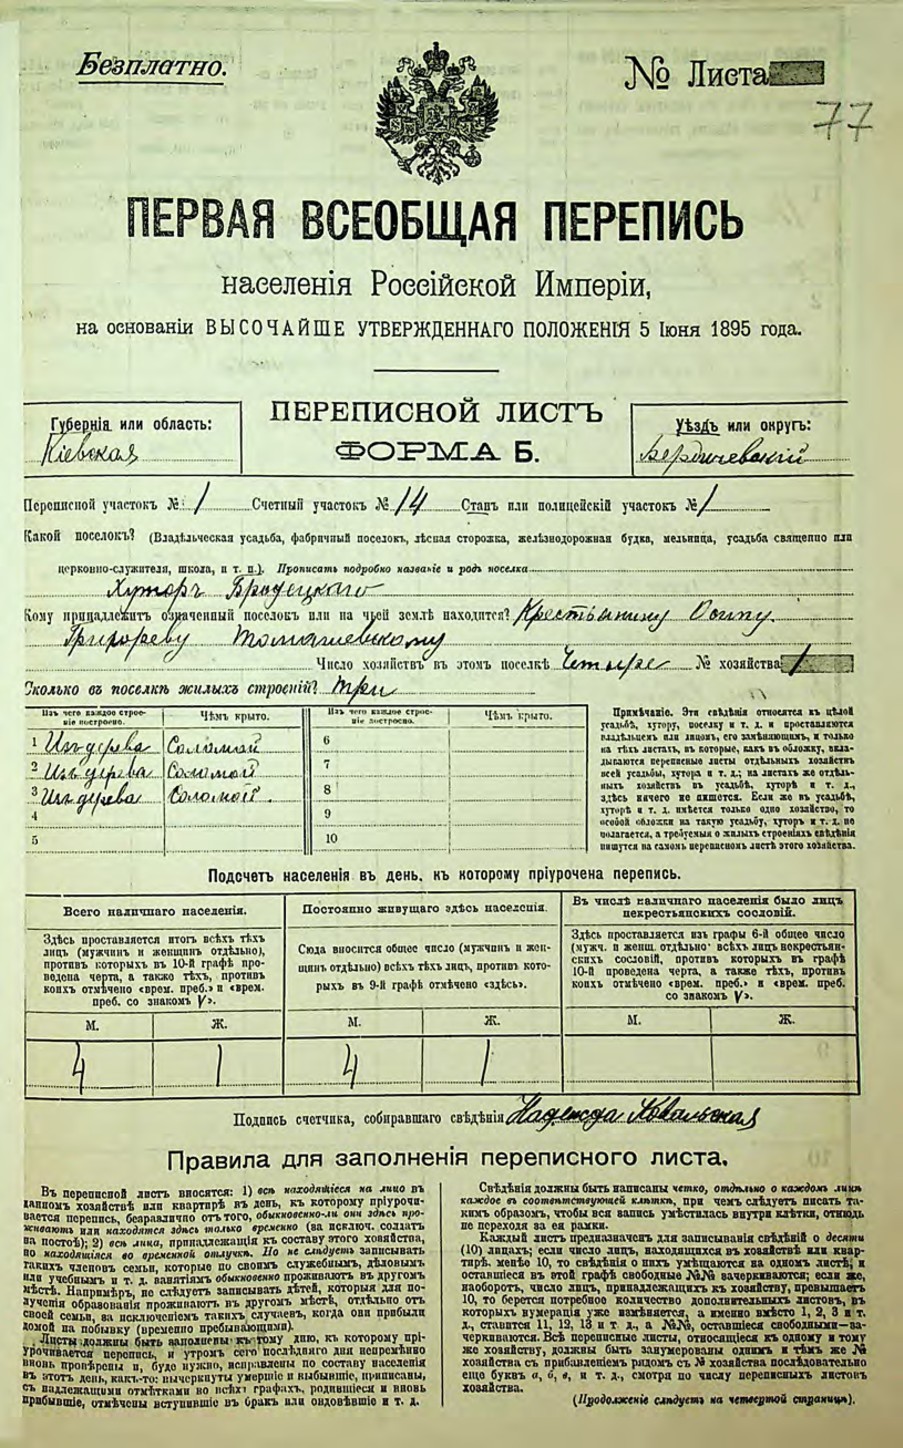 Безплатно.
№ Листа
77
ПЕРВАЯ ВСЕОБЩАЯ ПЕРЕПИСЬ
населенія Россійской Имперіи,
на основаніи ВЫСОЧАЙШЕ УТВЕРЖДЕННАГО ПОЛОЖЕНІЯ 5 Іюня 1895 года.
Губернія или область:
Кіевская
ПЕРЕПИСНОЙ ЛИСТЪ
ФОРМА Б.
Уѣздъ или округъ:
Бердичевскій
Переписной участокъ № 1 Счетный участокъ № 14 Станъ или полицейскій участокъ № 1
Какой поселокъ? (Владѣльческая усадьба, фабричный поселокъ, лѣсная сторожка, желѣзнодорожная будка, мельница, усадьба священно или
церковно-служителя, школа, и т. п.). Прописать подробно названіе и родъ поселка
Хуторъ Бродецкаго
Кому принадлежитъ означенный поселокъ или на чьей землѣ находится? Крестьянину Осипу
Григореву Томашевскому
Число хозяйствъ въ этомъ поселкѣ Четыре № хозяйства 1
Сколько въ поселкѣ жилыхъ строеній? три
Изъ чего каждое строе-
ніе построено.
Чѣмъ крыто.
Изъ чего каждое строе-
ніе построено.
Чѣмъ крыто.
1 Изъ дерева Соломой
2 Изъ дерева Соломой
3 Изъ дерева Соломой.
4
5
6
7
8
9
10
Примѣчаніе. Эти свѣдѣнія относятся къ цѣлой
усадьбѣ, хутору, поселку и т. д. и проставляются
владѣльцемъ или лицомъ, его замѣняющимъ, и только
на тѣхъ листахъ, въ которые, какъ въ обложку, вкла-
дываются переписные листы отдѣльныхъ хозяйствъ
всей усадьбы, хутора и т. д.; на листахъ же отдѣль-
ныхъ хозяйствъ въ усадьбѣ, хуторѣ и т. д.,
здѣсь ничего не пишется. Если же въ усадьбѣ,
хуторѣ и т. д. имѣется только одно хозяйство, то
особой обложки на такую усадьбу, хуторъ и т. д. не
полагается, а требуемыя о жилыхъ строеніяхъ свѣдѣнія
пишутся на самомъ переписномъ листѣ этого хозяйства.
Подсчетъ населенія въ день, къ которому пріурочена перепись.
Всего наличнаго населенія.
Здѣсь проставляется итогъ всѣхъ тѣхъ
лицъ (мужчинъ и женщинъ отдѣльно),
противъ которыхъ въ 10-й графѣ про-
ведена черта, а также тѣхъ, противъ
коихъ отмѣчено «врем. преб.» и «врем.
преб. со знакомъ V».
М. Ж.
4 1
Постоянно живущаго здѣсь населенія.
Сюда вносится общее число (мужчинъ и жен-
щинъ отдѣльно) всѣхъ тѣхъ лицъ, противъ кото-
рыхъ въ 9-й графѣ отмѣчено «здѣсь».
М. Ж.
4 1
Въ числѣ наличнаго населенія было лицъ
некрестьянскихъ сословій.
Здѣсь проставляется изъ графы 6-й общее число
(мужч. и женщ. отдѣльно) всѣхъ лицъ некрестьян-
скихъ сословій, противъ которыхъ въ графѣ
10-й проведена черта, а также тѣхъ, противъ
коихъ отмѣчено «врем. преб.» и «врем. преб.
со знакомъ V».
М. Ж.
Подпись счетчика, собиравшаго свѣдѣнія Надежда Ковальская
Правила для заполненія переписного листа.
Въ переписной листъ вносятся: 1) всѣ находящіеся на лицо въ
данномъ хозяйствѣ или квартирѣ въ день, къ которому пріурочи-
вается перепись, безразлично отъ того, обыкновенно-ли они здѣсь про-
живаютъ или находятся здѣсь только временно (за исключ. солдатъ
на постоѣ); 2) всѣ лица, принадлежащія къ составу этого хозяйства,
но находящіяся во временной отлучкѣ. Но не слѣдуетъ записывать
такихъ членовъ семьи, которые по своимъ служебнымъ, дѣловымъ
или учебнымъ и т. д. занятіямъ обыкновенно проживаютъ въ другомъ
мѣстѣ. Напримѣръ, не слѣдуетъ записывать дѣтей, которыя для по-
лученія образованія проживаютъ въ другомъ мѣстѣ, отдѣльно отъ
своей семьи, за исключеніемъ такихъ случаевъ, когда они прибыли
домой на побывку (временно пребывающими).
Листы должны быть заполнены къ тому дню, къ которому прі-
урочивается перепись, и утромъ сего послѣдняго дня непремѣнно
вновь провѣрены и, буде нужно, исправлены по составу населенія
въ этотъ день, какъ-то: вычеркнуты умершіе и выбывшіе, приписаны,
съ надлежащими отмѣтками во всѣхъ графахъ, родившіеся и вновь
прибывшіе, отмѣчены вступившіе въ бракъ или овдовѣвшіе и т. д.
Свѣдѣнія должны быть написаны четко, отдѣльно о каждомъ лицѣ
каждое въ соотвѣтствующей клѣткѣ, при чемъ слѣдуетъ писать та-
кимъ образомъ, чтобы вся запись умѣстилась внутри клѣтки, отнюдь
не переходя за ея рамки.
Каждый листъ предназначенъ для записыванія свѣдѣній о десяти
(10) лицахъ; если число лицъ, находящихся въ хозяйствѣ или квар-
тирѣ, менѣе 10, то свѣдѣнія о нихъ умѣщаются на одномъ листѣ, и
оставшіеся въ этой графѣ свободные №№ зачеркиваются; если же,
наоборотъ, число лицъ, принадлежащихъ къ хозяйству, превышаетъ
10, то берется потребное количество дополнительныхъ листовъ, въ
которыхъ нумерація уже измѣняется, а именно вмѣсто 1, 2, 3 и т.
д., ставится 11, 12, 13 и т. д., а №№, оставшіеся свободными—за-
черкиваются. Всѣ переписные листы, относящіеся къ одному и тому
же хозяйству, должны быть занумерованы однимъ и тѣмъ же №
хозяйства съ прибавленіемъ рядомъ съ № хозяйства послѣдовательно
еще буквъ а, б, в, и т. д., смотря по числу переписныхъ листовъ
хозяйства.
(Продолженіе слѣдуетъ на четвертой страницѣ).